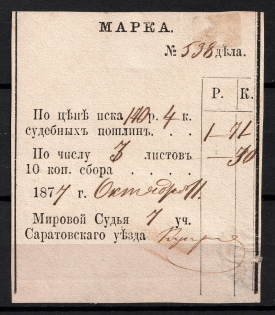 МАРКА.
№ 538 дѣла.
Р. К.
По цѣнѣ иска 140 р. 4 к.
судебныхъ пошлинъ. 1 71
По числу 3 листовъ
10 коп. сбора . . . . — 30
1877 г. Октября 11.
Мировой Судья 7 уч.
Саратовскаго уѣзда